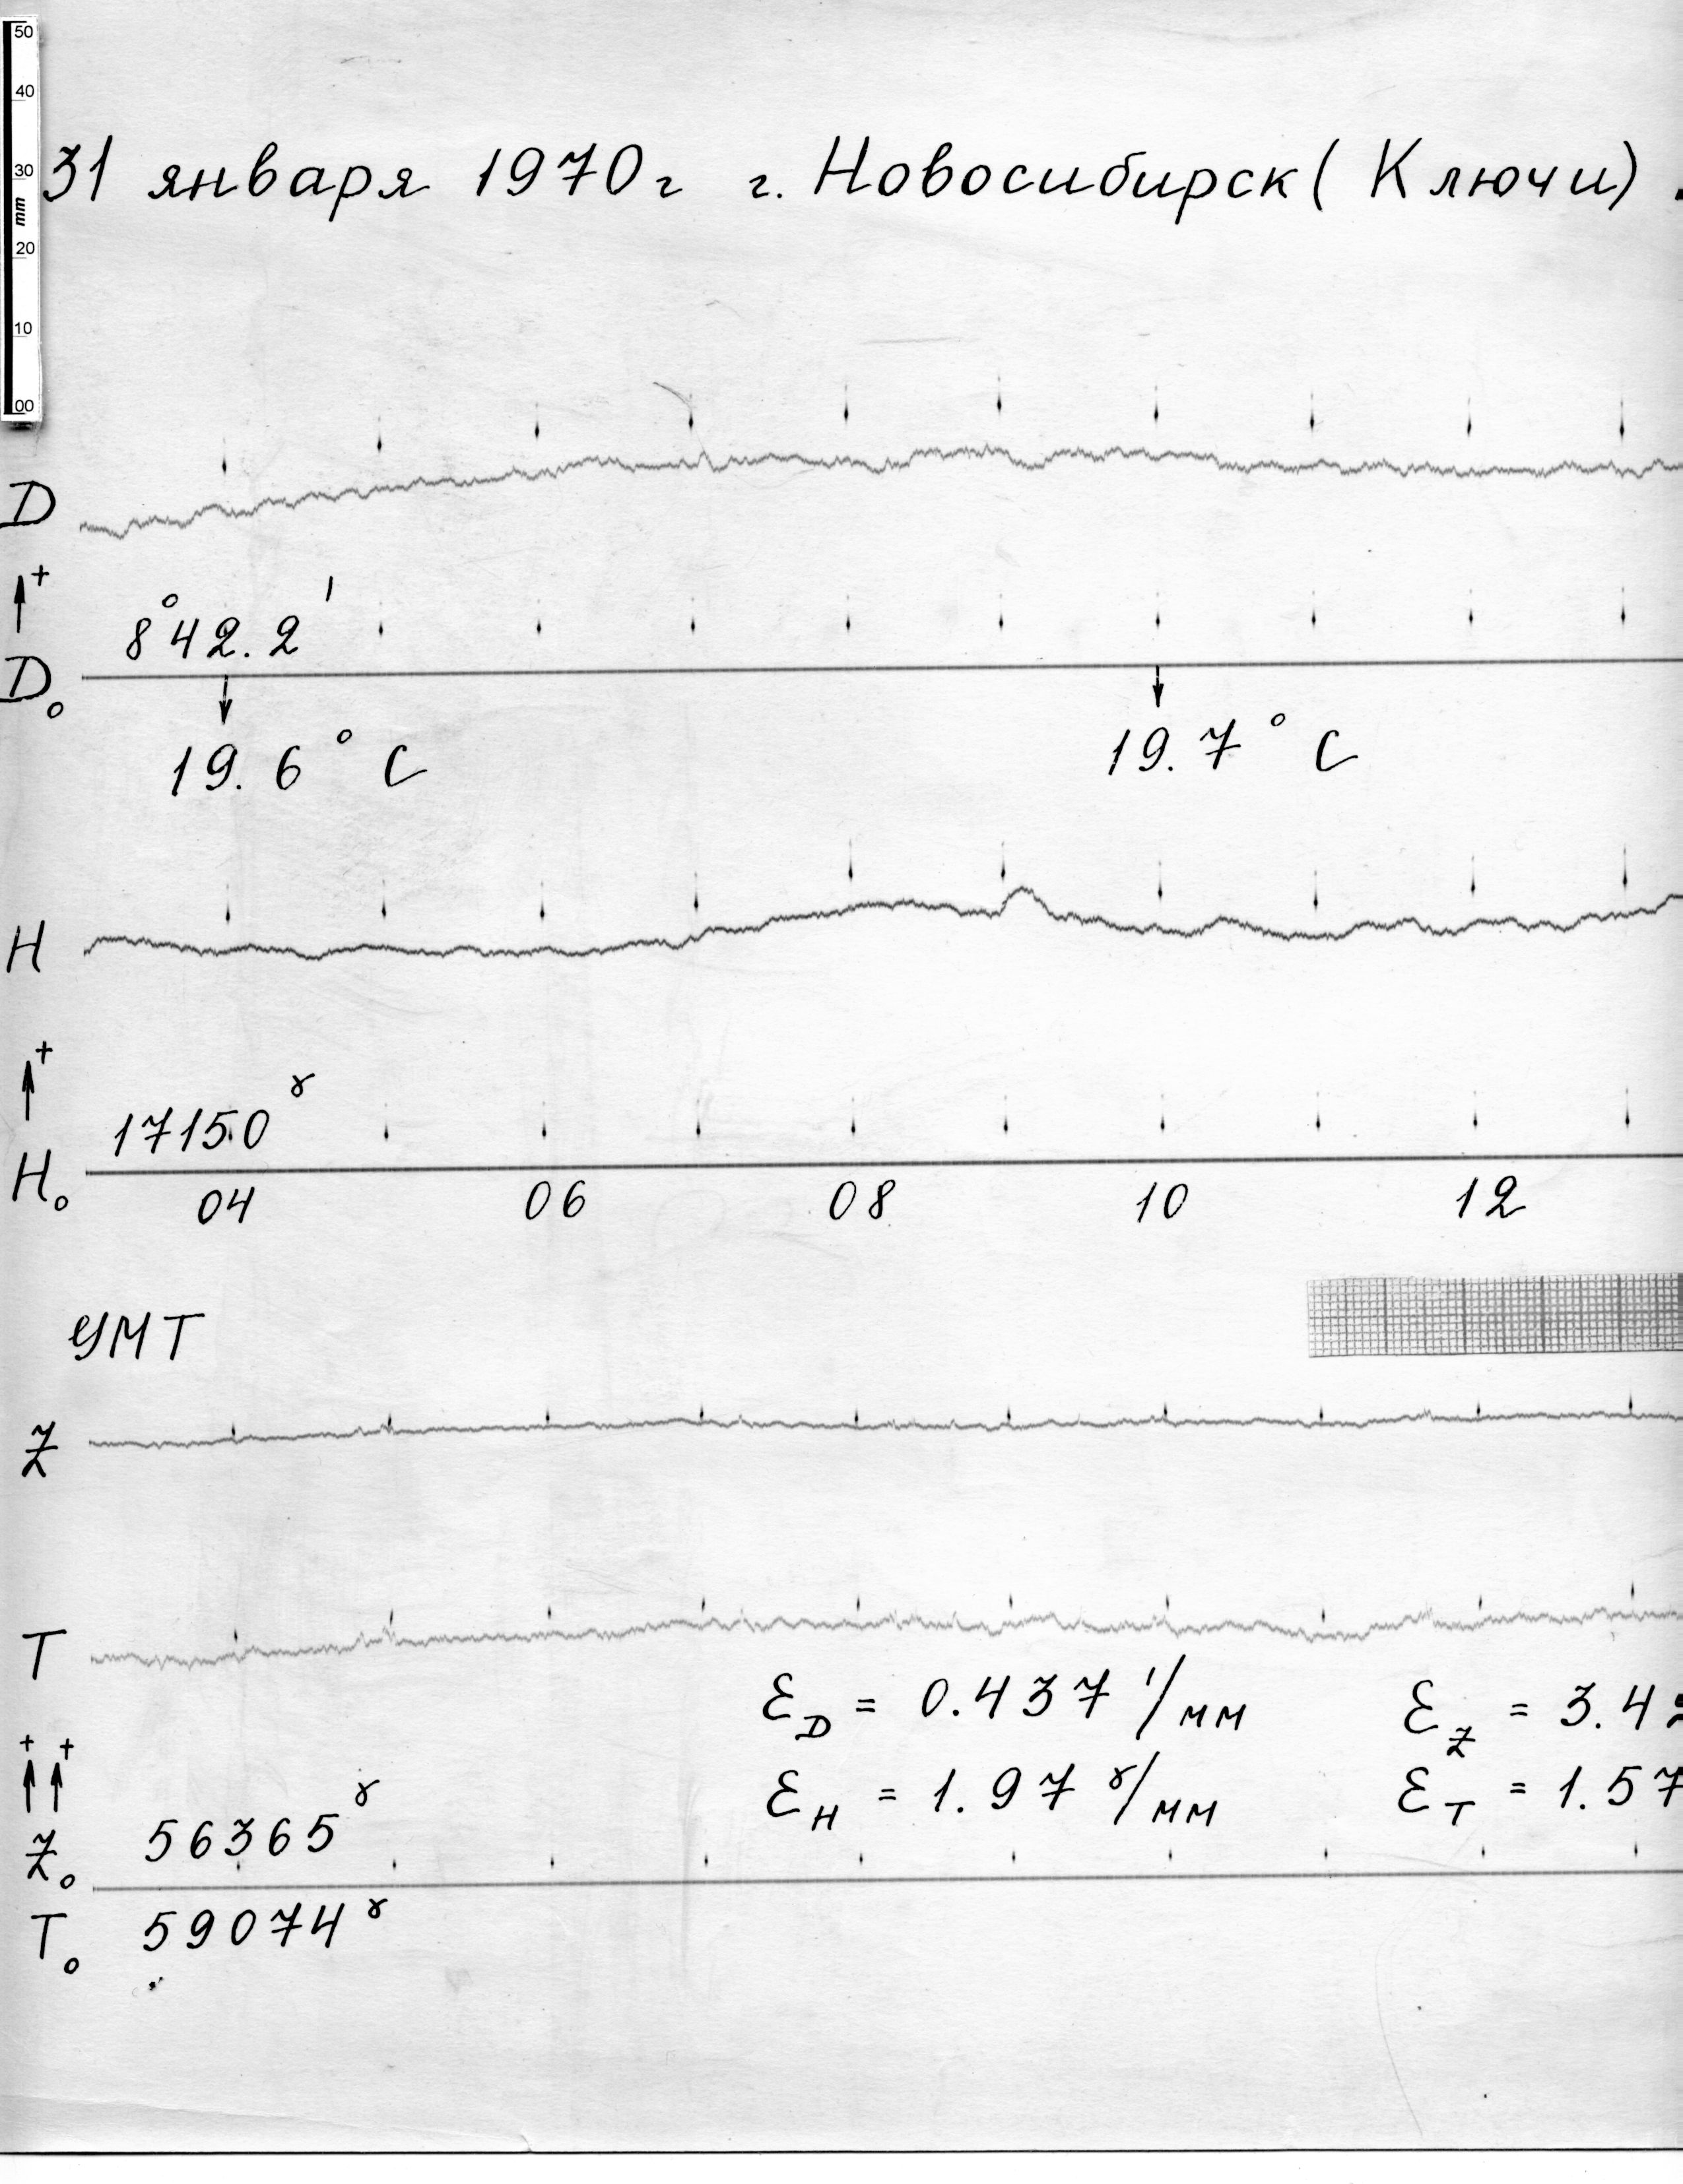 50
40
30
mm
20
10
00
31 января 1970г г. Новосибирск (Ключи)
D
+
8°42.2'
D₀
19.6°C 19.7°C
H
+
17150 ɣ
H₀
04 06 08 10 12
УМТ
Z
T
ε_D = 0.437 '/мм ε_Z = 3.4
+ +
ε_H = 1.97 ɣ/мм ε_T = 1.57
56365 ɣ
Z₀
T₀ 59074 ɣ